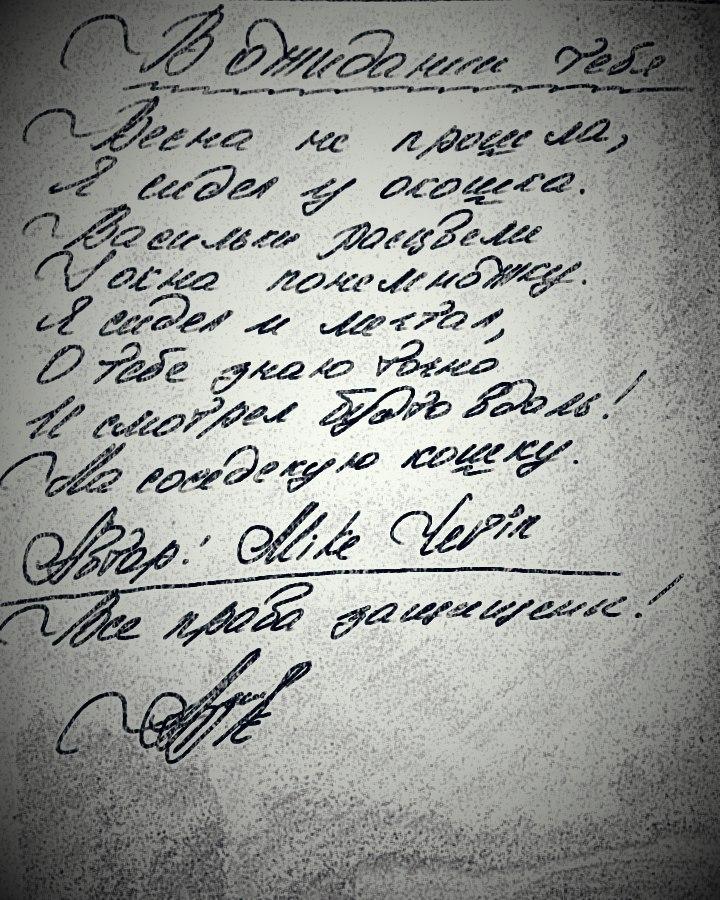 В ожидании тебя
Весна не прошла,
Я сидел у окошка.
Васильки расцвели
У окна понемножку.
Я сидел и мечтал,
О тебе знаю точно
И смотрел будто вдаль!
На соседскую кошку.
Автор: Mike
Все права защищены!